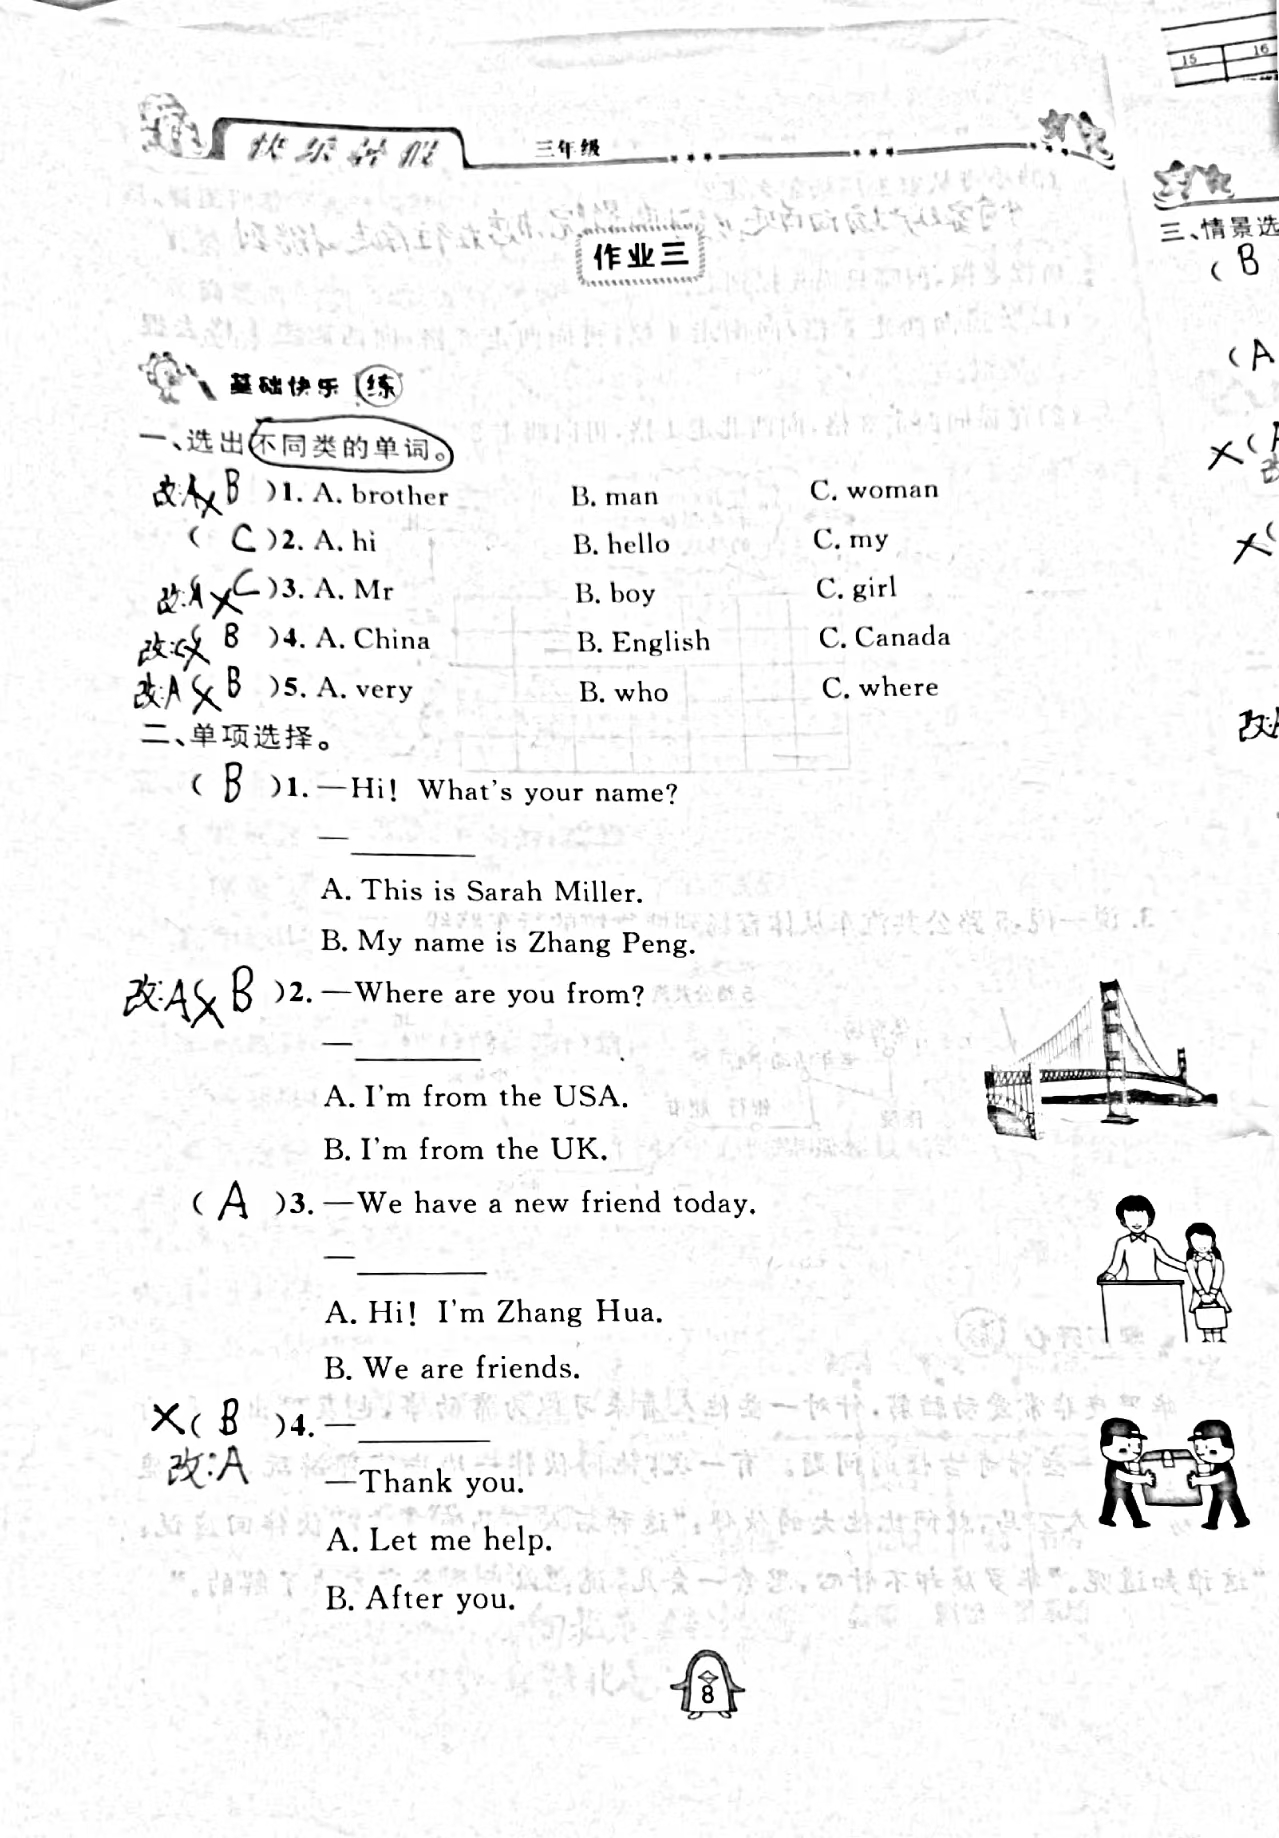 15 16
快乐暑假 三年级
作业三
基础快乐 练
一、选出不同类的单词。
改:A B )1. A. brother B. man C. woman
( C )2. A. hi B. hello C. my
改:A C )3. A. Mr B. boy C. girl
改:C B )4. A. China B. English C. Canada
改:A B )5. A. very B. who C. where
二、单项选择。
( B )1. —Hi! What's your name?
—________
A. This is Sarah Miller.
B. My name is Zhang Peng.
改:A B )2. —Where are you from?
—________
A. I'm from the USA.
B. I'm from the UK.
( A )3. —We have a new friend today.
—________
A. Hi! I'm Zhang Hua.
B. We are friends.
( B )4. —________
改:A
—Thank you.
A. Let me help.
B. After you.
8
三、情景选
( B
( A